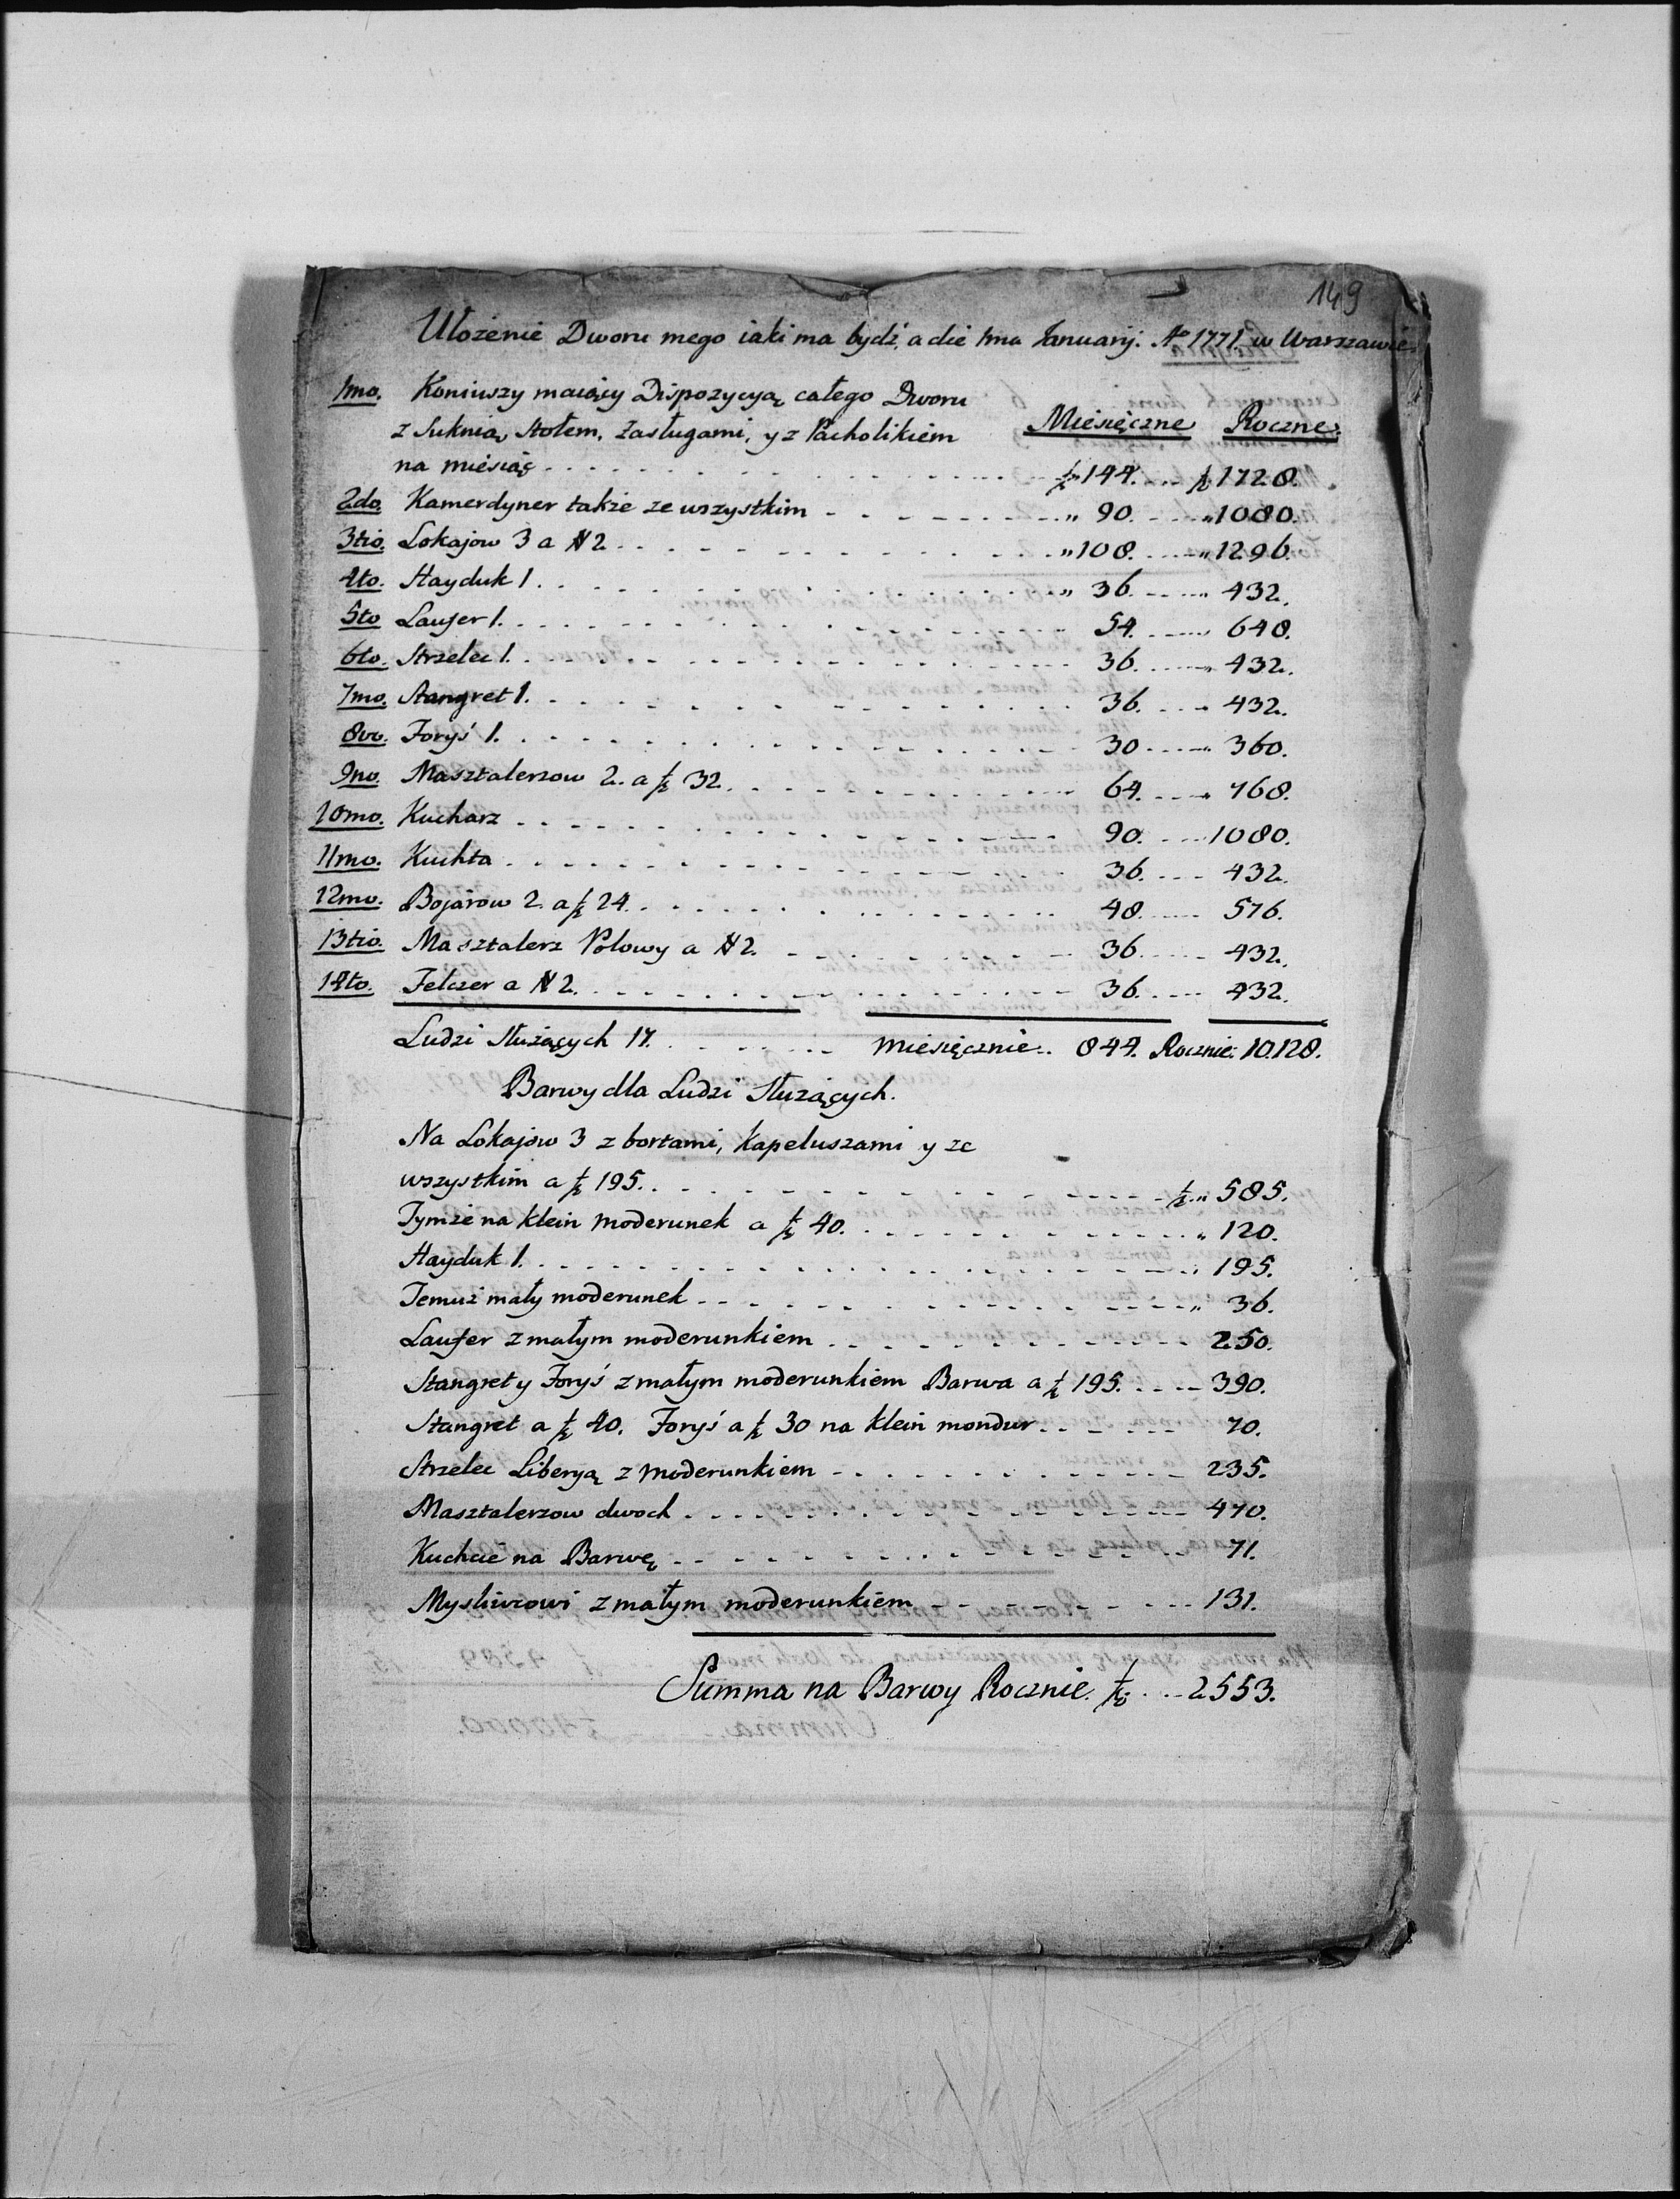 149
Ułożenie Dworu mego iaki ma bydź a die 1ma Januarij. Ao 1771. w Warszawie.
1mo. Koniuszy maiący Dispozycyą całego Dworu
z Suknią, Stołem, Zasługami, y z Pacholikiem Miesięczne Roczne.
na miesiąc 144. 1728.
2do. Kamerdyner także ze wszystkim " 90. " 1080.
3tio. Lokajow 3 a # 2 " 108. " 1296.
4to. Hayduk 1. " 36. " 432.
5to Laufer 1. 54. " 648.
6to. Strzelec 1. 36. " 432.
7mo. Stangret 1. 36. 432.
8vo. Foryś 1. 30 360.
9no. Masztalerzow 2. a f 32. 64. 768.
10mo. Kucharz 90. 1080.
11mo. Kuchta 36. 432.
12mo. Bojarow 2. a f 24. 48. 576.
13tio. Masztalerz Polowy a # 2. 36. 432.
14to. Felczer a # 2. 36. 432.
Ludzi Służących 17. miesięcznie. 844. Rocznie: 10.128.
Barwy dla Ludzi Służących.
Na Lokajow 3 z bortami, kapeluszami y ze
wszystkim a f 195. f " 585.
Tymże na klein moderunek a f 40. " 120.
Hayduk 1. " 195.
Temuż mały moderunek " 36.
Laufer z małym moderunkiem 250.
Stangret y Foryś z małym moderunkiem Barwa a f 195. 390.
Stangret a f 40. Foryś a f 30 na klein mondur 70.
Strzelec Liberyą z moderunkiem 235.
Masztalerzow dwoch 470.
Kuchcie na Barwę 71.
Mysliwcowi z małym moderunkiem 131.
Summa na Barwy Rocznie. f 2553.